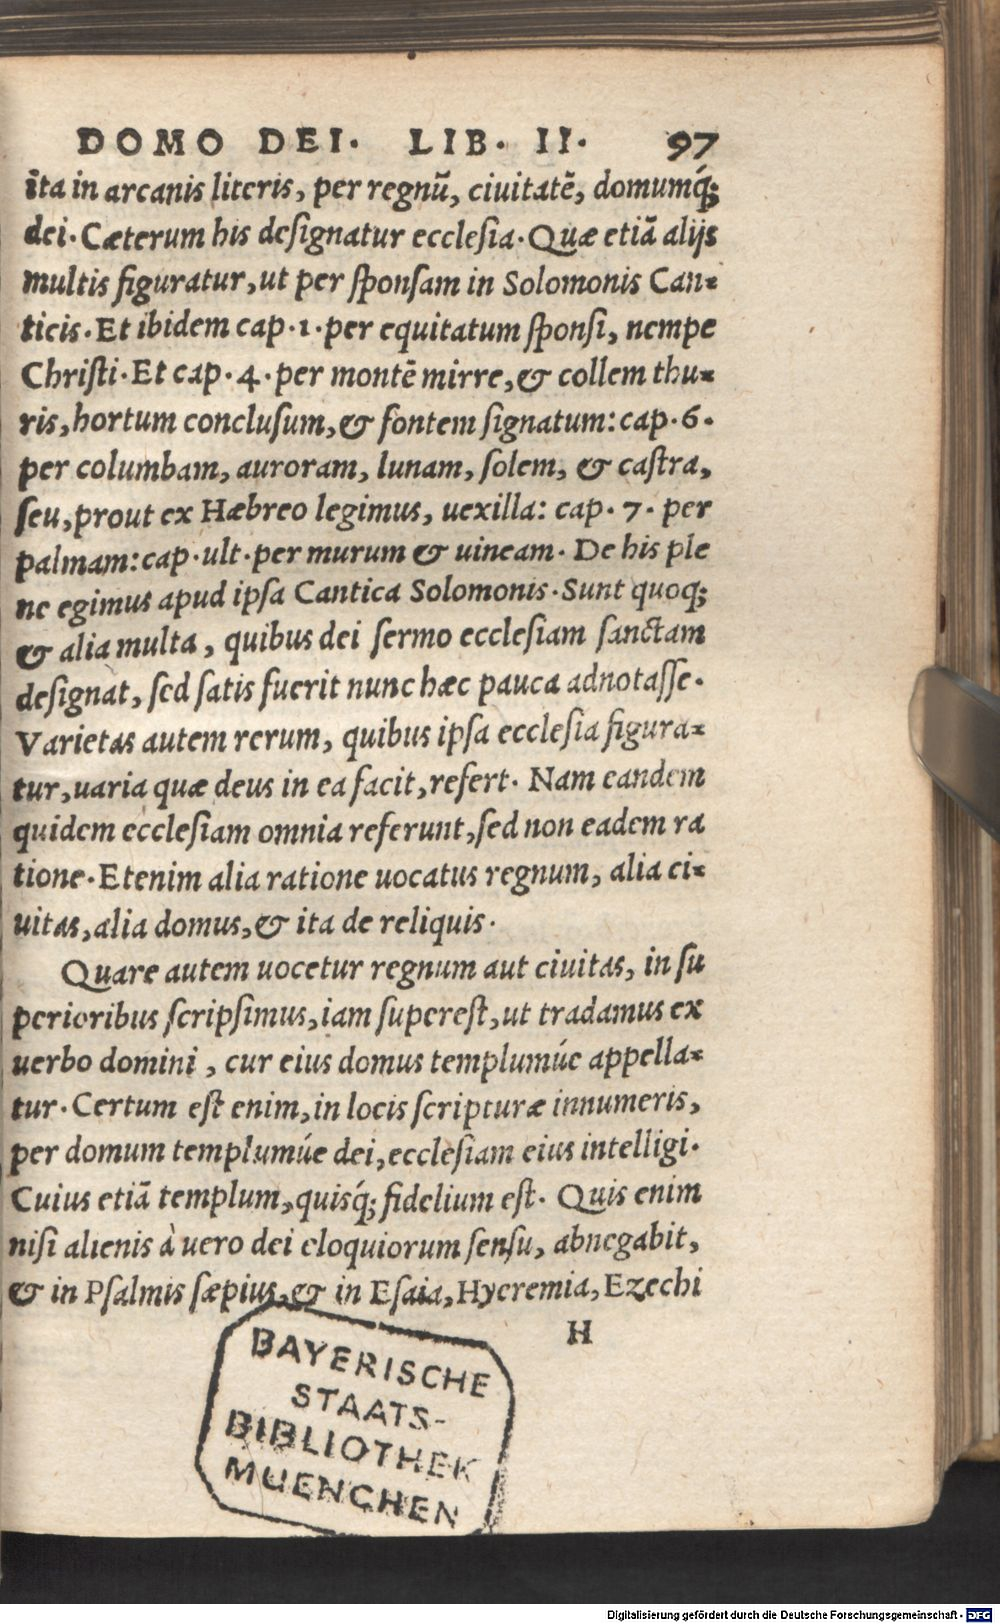 DOMO DEI. LIB. II. 97
ita in arcanis literis, per regnū, ciuitatē, domumq́;
dei. Cæterum his designatur ecclesia. Quæ etiā alijs
multis figuratur, ut per sponsam in Solomonis Can-
ticis. Et ibidem cap. 1. per equitatum sponsi, nempe
Christi. Et cap. 4. per montē mirre, & collem thu-
ris, hortum conclusum, & fontem signatum: cap. 6.
per columbam, auroram, lunam, solem, & castra,
seu, prout ex Hæbreo legimus, uexilla: cap. 7. per
palmam: cap. ult. per murum & uineam. De his ple
ne egimus apud ipsa Cantica Solomonis. Sunt quoq;
& alia multa, quibus dei sermo ecclesiam sanctam
designat, sed satis fuerit nunc hæc pauca adnotasse.
Varietas autem rerum, quibus ipsa ecclesia figura-
tur, uaria quæ deus in ea facit, refert. Nam eandem
quidem ecclesiam omnia referunt, sed non eadem ra
tione. Etenim alia ratione uocatus regnum, alia ci-
uitas, alia domus, & ita de reliquis.
Quare autem uocetur regnum aut ciuitas, in su
perioribus scripsimus, iam superest, ut tradamus ex
uerbo domini, cur eius domus templumúe appella-
tur. Certum est enim, in locis scripturæ innumeris,
per domum templumúe dei, ecclesiam eius intelligi.
Cuius etiā templum, quisq́; fidelium est. Quis enim
nisi alienis à uero dei eloquiorum sensu, abnegabit,
& in Psalmis sæpius, & in Esaia, Hyeremia, Ezechi
H
BAYERISCHE
STAATS-
BIBLIOTHEK
MUENCHEN
Digitalisierung gefördert durch die Deutsche Forschungsgemeinschaft - DFG